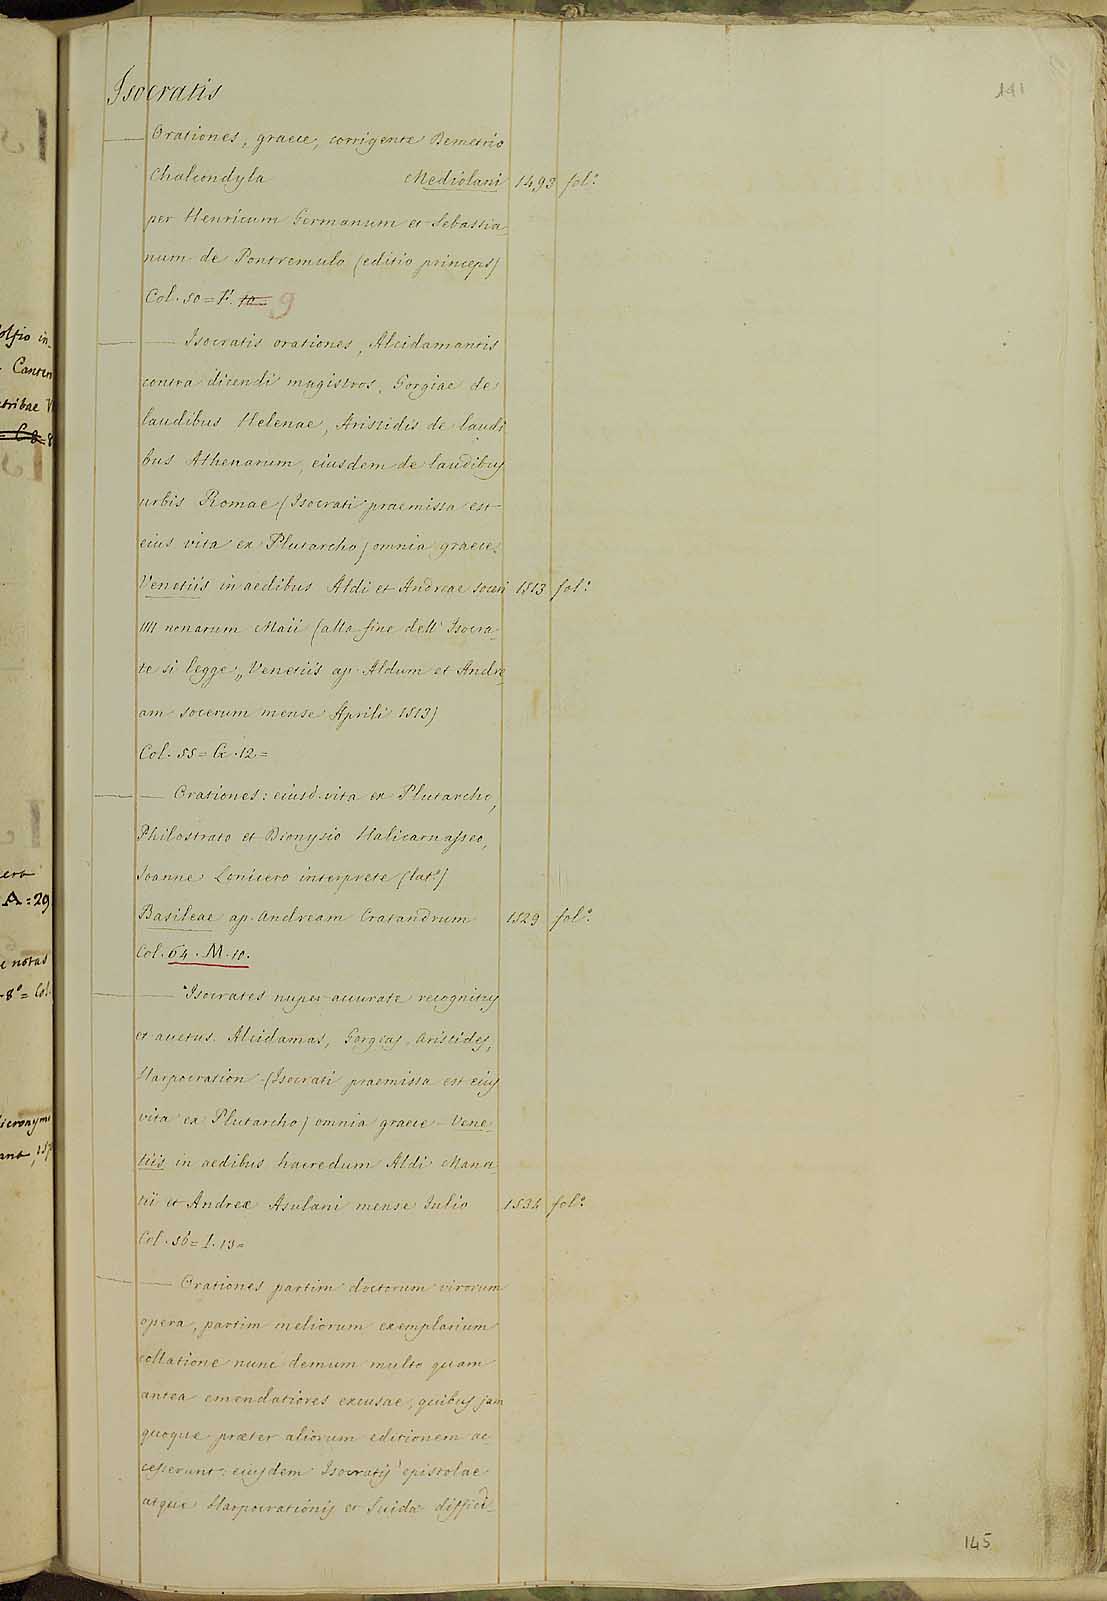 141
Isocratis
— Orationes, graece, corrigente Demetrio
Chalcondyla Mediolani 1493 fol.º
per Henricum Germanum et Sebastia=
num de Pontremulo (editio princeps)
Col. 50 = F. 10 = 9
— Isocratis orationes, Alcidamantis
contra dicendi magistros, Gorgiae de
laudibus Helenae, Aristidis de laudi
bus Athenarum, eiusdem de laudibus
urbis Romae (Isocrati praemissa est
eius vita ex Plutarcho) omnia graece.
Venetiis in aedibus Aldi et Andreae soceri 1513 fol.º
IIII nonarum Maii (alla fine dell' Isocra=
te si legge „ Venetiis ap. Aldum et Andre=
am socerum mense Aprili 1513)
Col. 55 = G. 12 =
— Orationes: eiusd. vita ex Plutarcho,
Philostrato et Dionysio Halicarnasseo,
Joanne Lonicero interprete (lat.e)
Basileae ap. Andream Cratandrum 1529 fol.º
Col. 64. M. 10.
— Isocrates nuper accurate recognitus
et auctus. Alcidamas, Gorgias, Aristides,
Harpocration (Isocrati praemissa est eius
vita ex Plutarcho) omnia graece — Vene=
tiis in aedibus haeredum Aldi Manu=
tii et Andreæ Asulani mense Julio 1534 fol.º
Col. 56 = I. 13 =
— Orationes partim doctorum virorum
opera, partim meliorum exemplarium
collatione nunc demum multo quam
antea emendatiores excusae, quibus jam
quoque præter aliorum editionem ac=
cesserunt: eiusdem Isocratis epistolae
atque Harpocrationis et Suidæ diffici=
145
olfio in=
Canter
atribae
A = 29
e notas
8º = Col.
Hieronymi